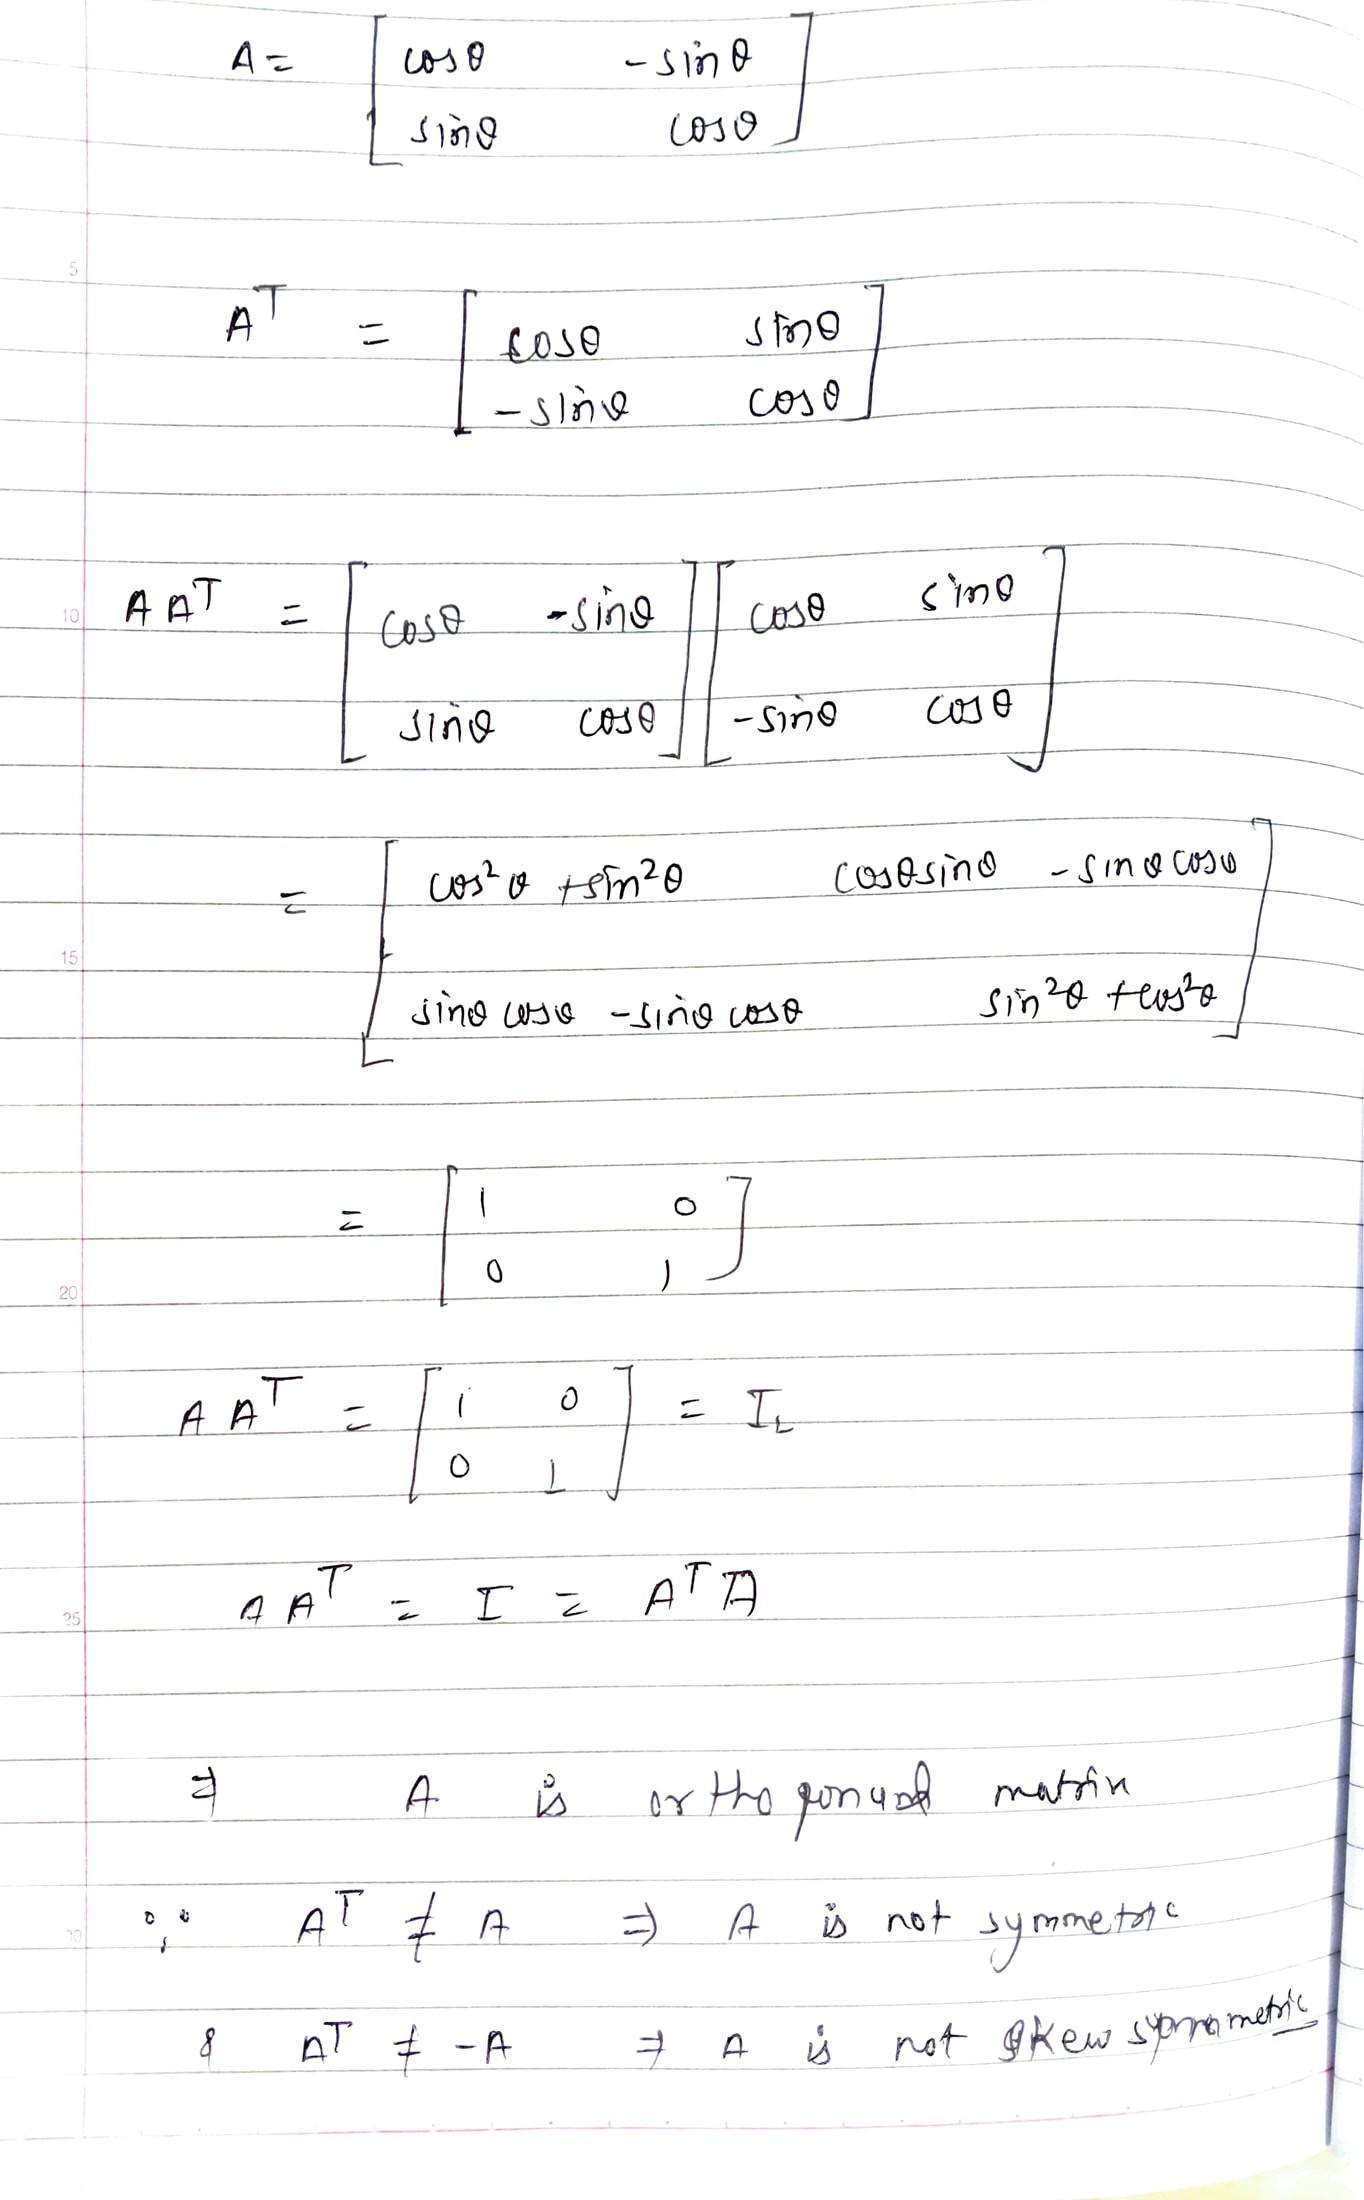 A = [ cosθ -sinθ
sinθ cosθ ]
5
A^T = [ cosθ sinθ
-sinθ cosθ ]
10 A A^T = [ cosθ -sinθ ] [ cosθ sinθ
sinθ cosθ ] [ -sinθ cosθ ]
= [ cos²θ + sin²θ cosθ sinθ - sinθ cosθ
15
sinθ cosθ - sinθ cosθ sin²θ + cos²θ ]
= [ 1 0
0 1 ]
20
A A^T = [ 1 0 ] = I₂
[ 0 1 ]
25 A A^T = I = A^T A
⇒ A is orthogonal matrix
30 ∵ A^T ≠ A ⇒ A is not symmetric
& A^T ≠ -A ⇒ A is not skew symmetric